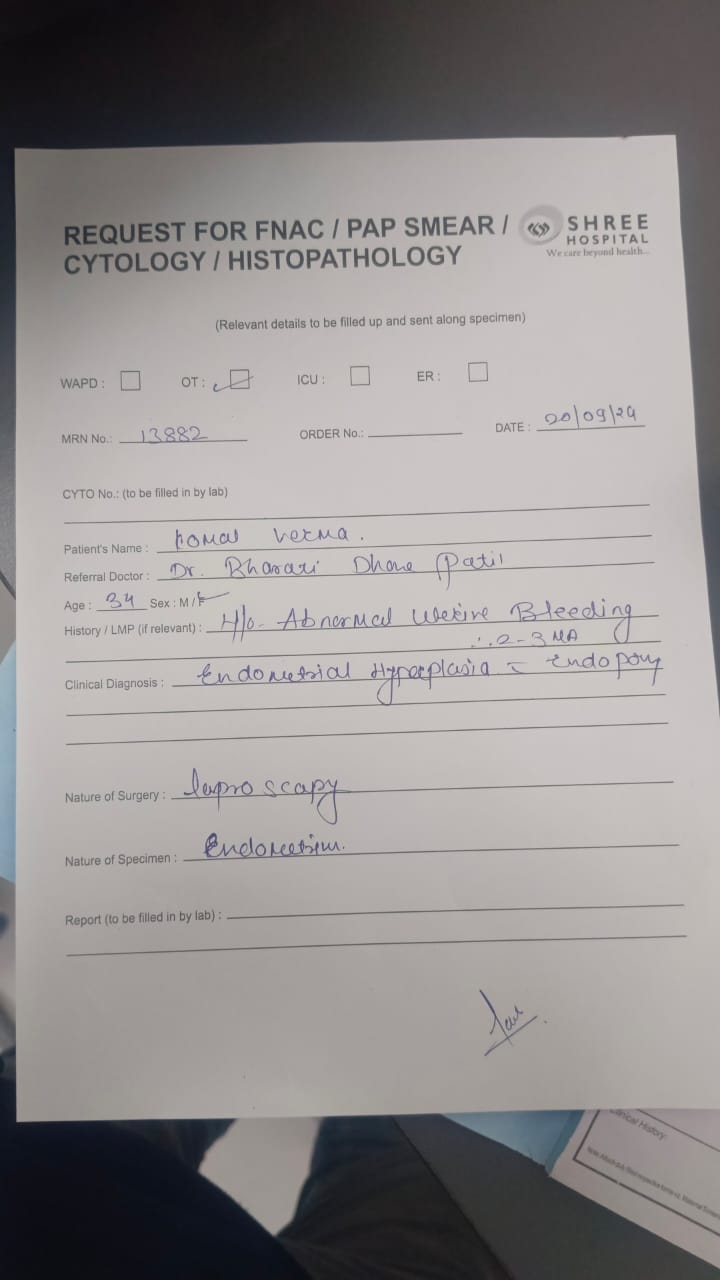 REQUEST FOR FNAC / PAP SMEAR /
CYTOLOGY / HISTOPATHOLOGY
SHREE
HOSPITAL
We care beyond health...
(Relevant details to be filled up and sent along specimen)
WAPD : OT : ICU : ER :
MRN No.: 13882 ORDER No.: DATE : 20/09/24
CYTO No.: (to be filled in by lab)
Patient's Name : Komal Verma.
Referral Doctor : Dr. Bharati Dhore Patil
Age : 34 Sex : M / F
History / LMP (if relevant) : H/o - Abnormal Uterine Bleeding
2-3
Clinical Diagnosis : Endometrial Hyperplasia
Nature of Surgery : laproscapy
Nature of Specimen : Endometrium.
Report (to be filled in by lab) :
Clinical History: